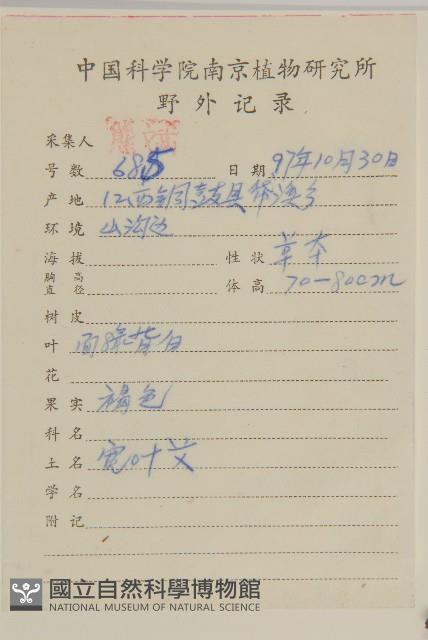 中国科学院南京植物研究所
野外记录
采集人 熊
号数 6815 日期 97年10月30日
产地 江西铜鼓县带溪乡
环境 山沟边
海拔 性状 草本
胸高直径 体高 70-80cm
树皮
叶 面绿背白
花
果实 褐色
科名
土名 宽叶艾
学名
附记
國立自然科學博物館
NATIONAL MUSEUM OF NATURAL SCIENCE